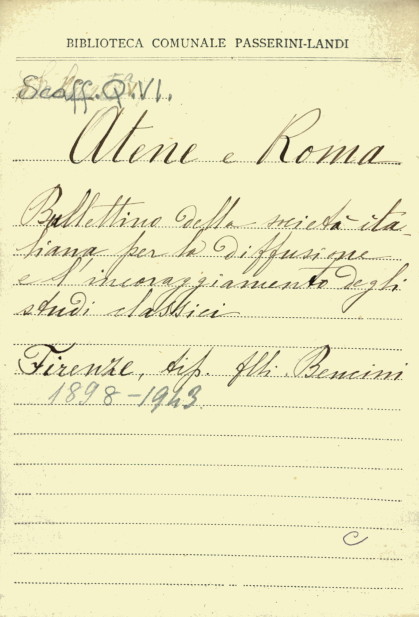 BIBLIOTECA COMUNALE PASSERINI-LANDI
Scaff. Q. VI.
Atene e Roma
Bullettino della società ita-
liana per la diffusione
e l'incoraggiamento degli
studi classici
Firenze, tip. flli. Bencini
1898-1943
C